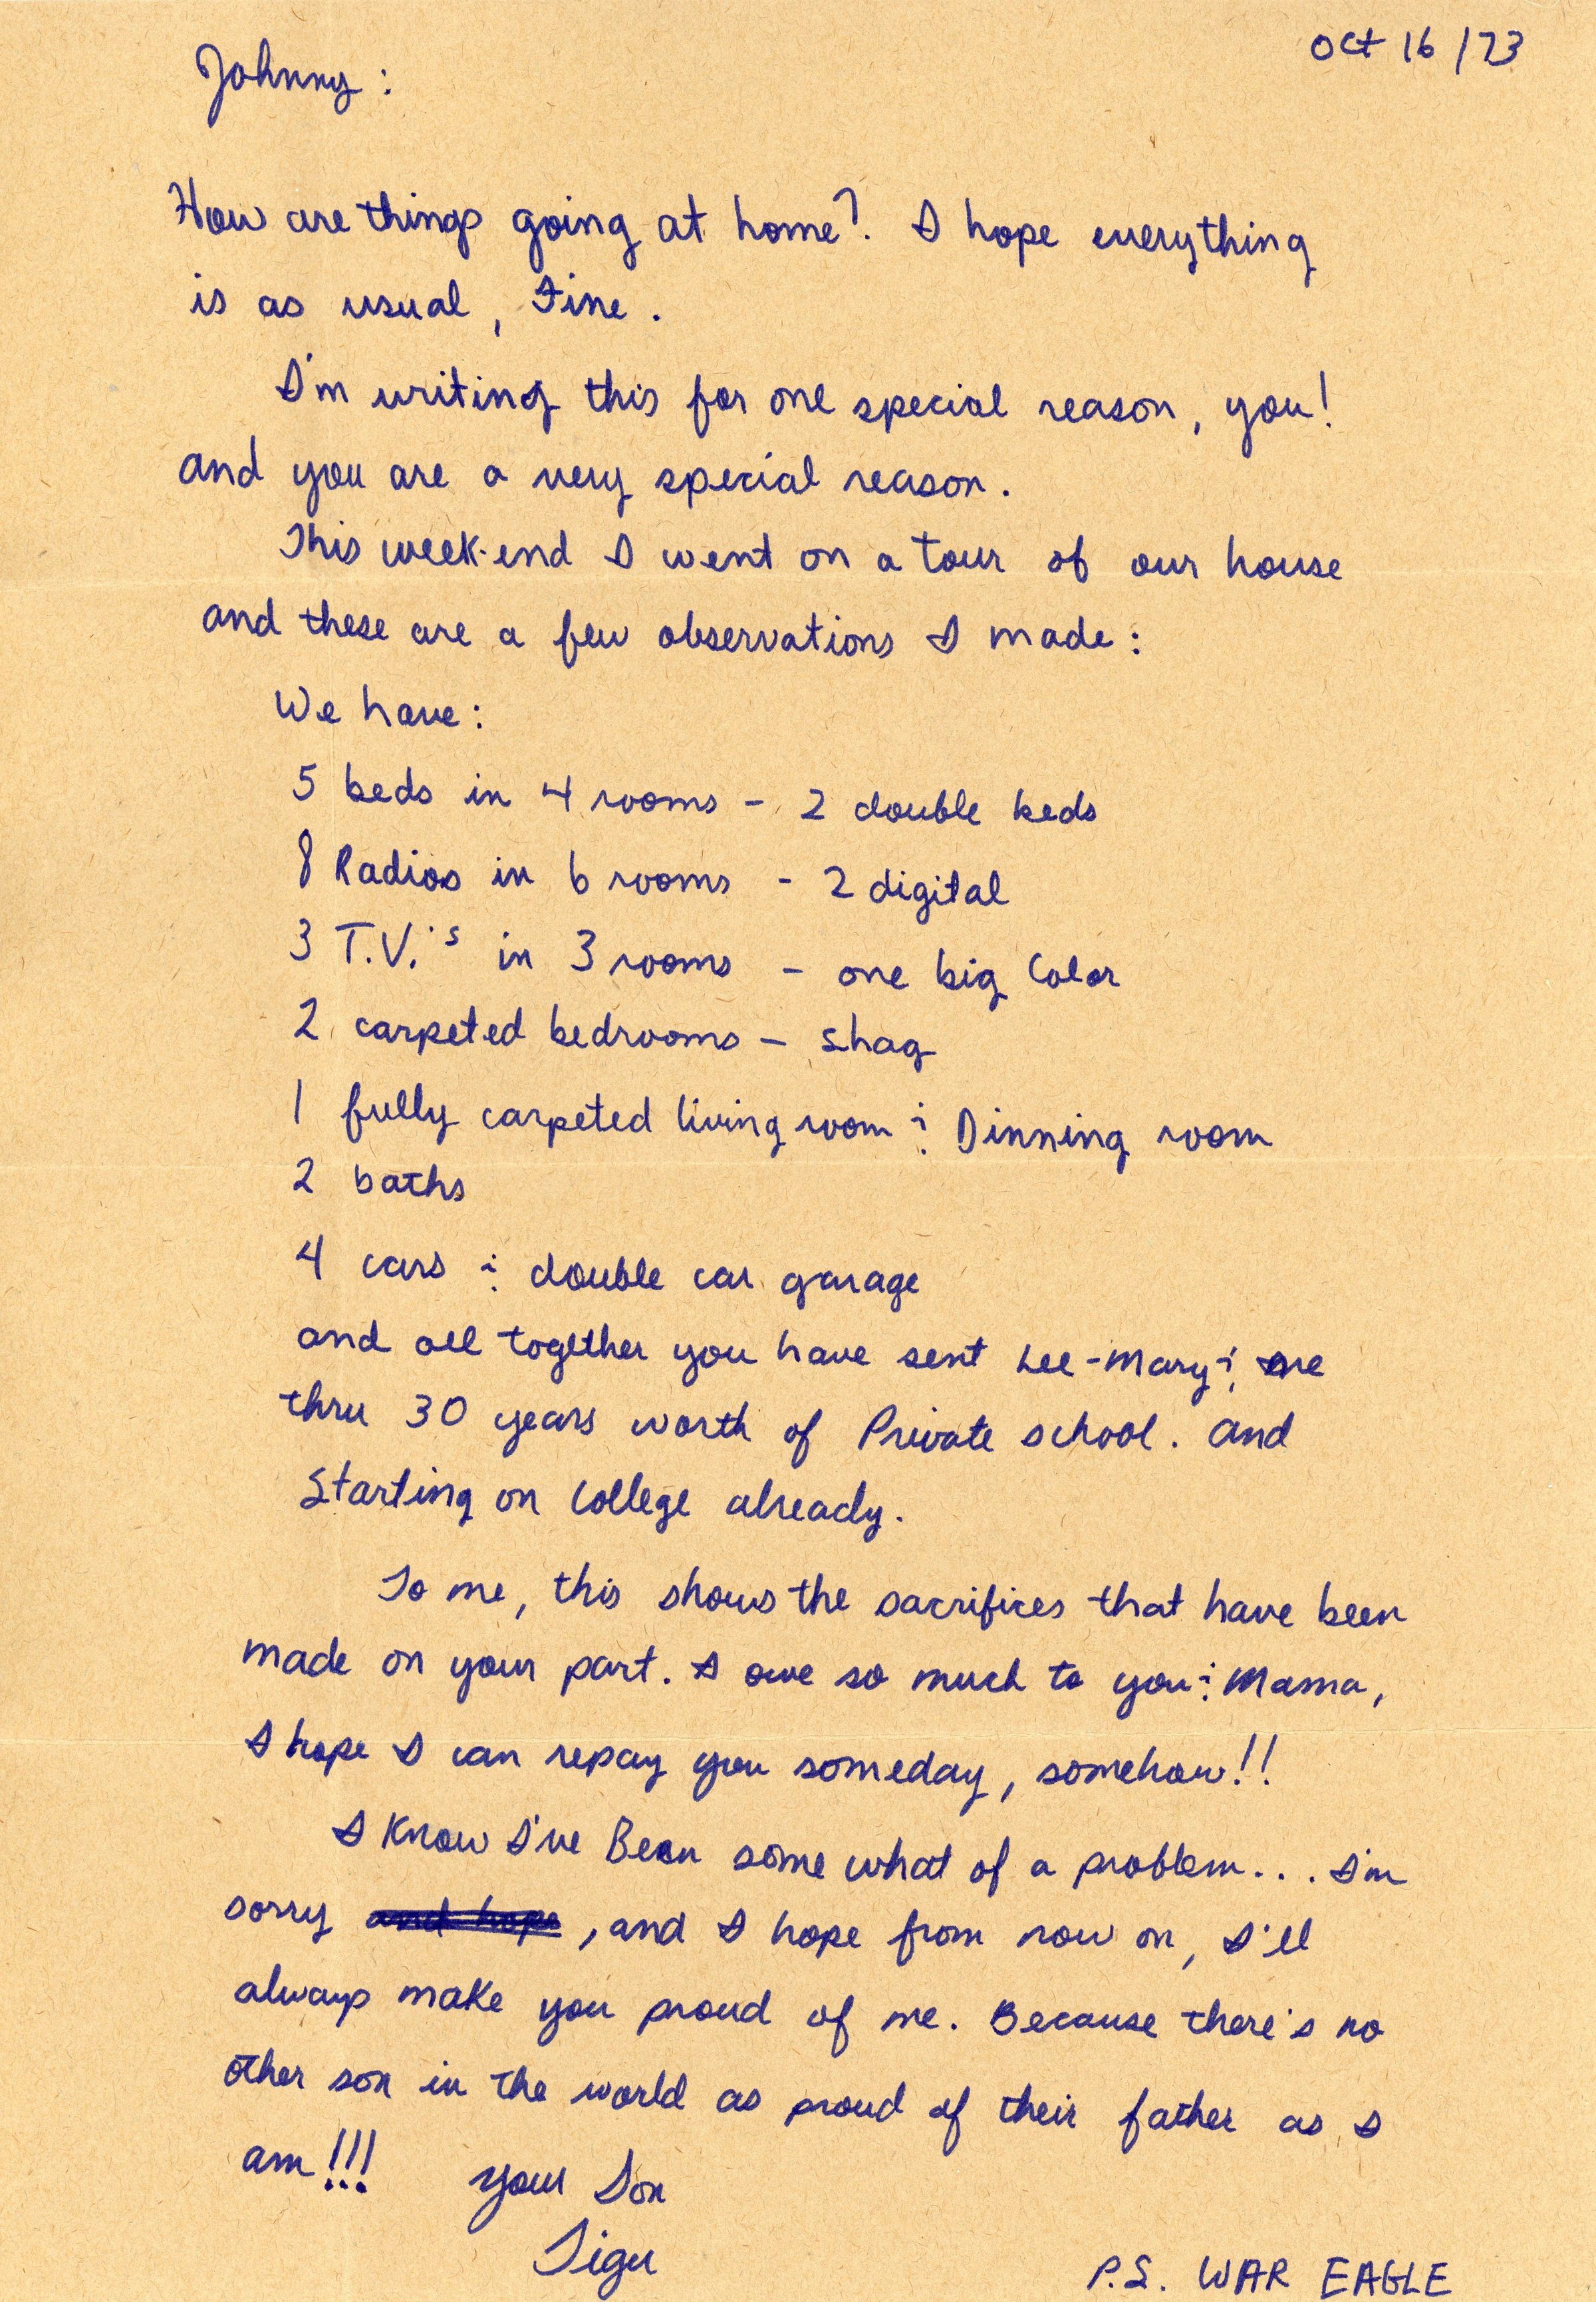 Oct 16/73
Johnny:
How are things going at home? I hope everything
is as usual, Fine.
I'm writing this for one special reason, you!
and you are a very special reason.
This week-end I went on a tour of our house
and these are a few observations I made:
We have:
5 beds in 4 rooms - 2 double beds
8 Radios in 6 rooms - 2 digital
3 T.V.'s in 3 rooms - one big Color
2 carpeted bedrooms - shag
1 fully carpeted living room & Dinning room
2 baths
4 cars & double car garage
and all together you have sent Lee-Mary & me
thru 30 years worth of Private school. and
Starting on College already.
To me, this shows the sacrifices that have been
made on your part. I owe so much to you & Mama,
I hope I can repay you someday, somehow!!
I Know I've Been some what of a problem... I'm
sorry and hope, and I hope from now on, I'll
always make you proud of me. Because there's no
other son in the world as proud of their father as I
am!!! your Son
P.S. WAR EAGLE